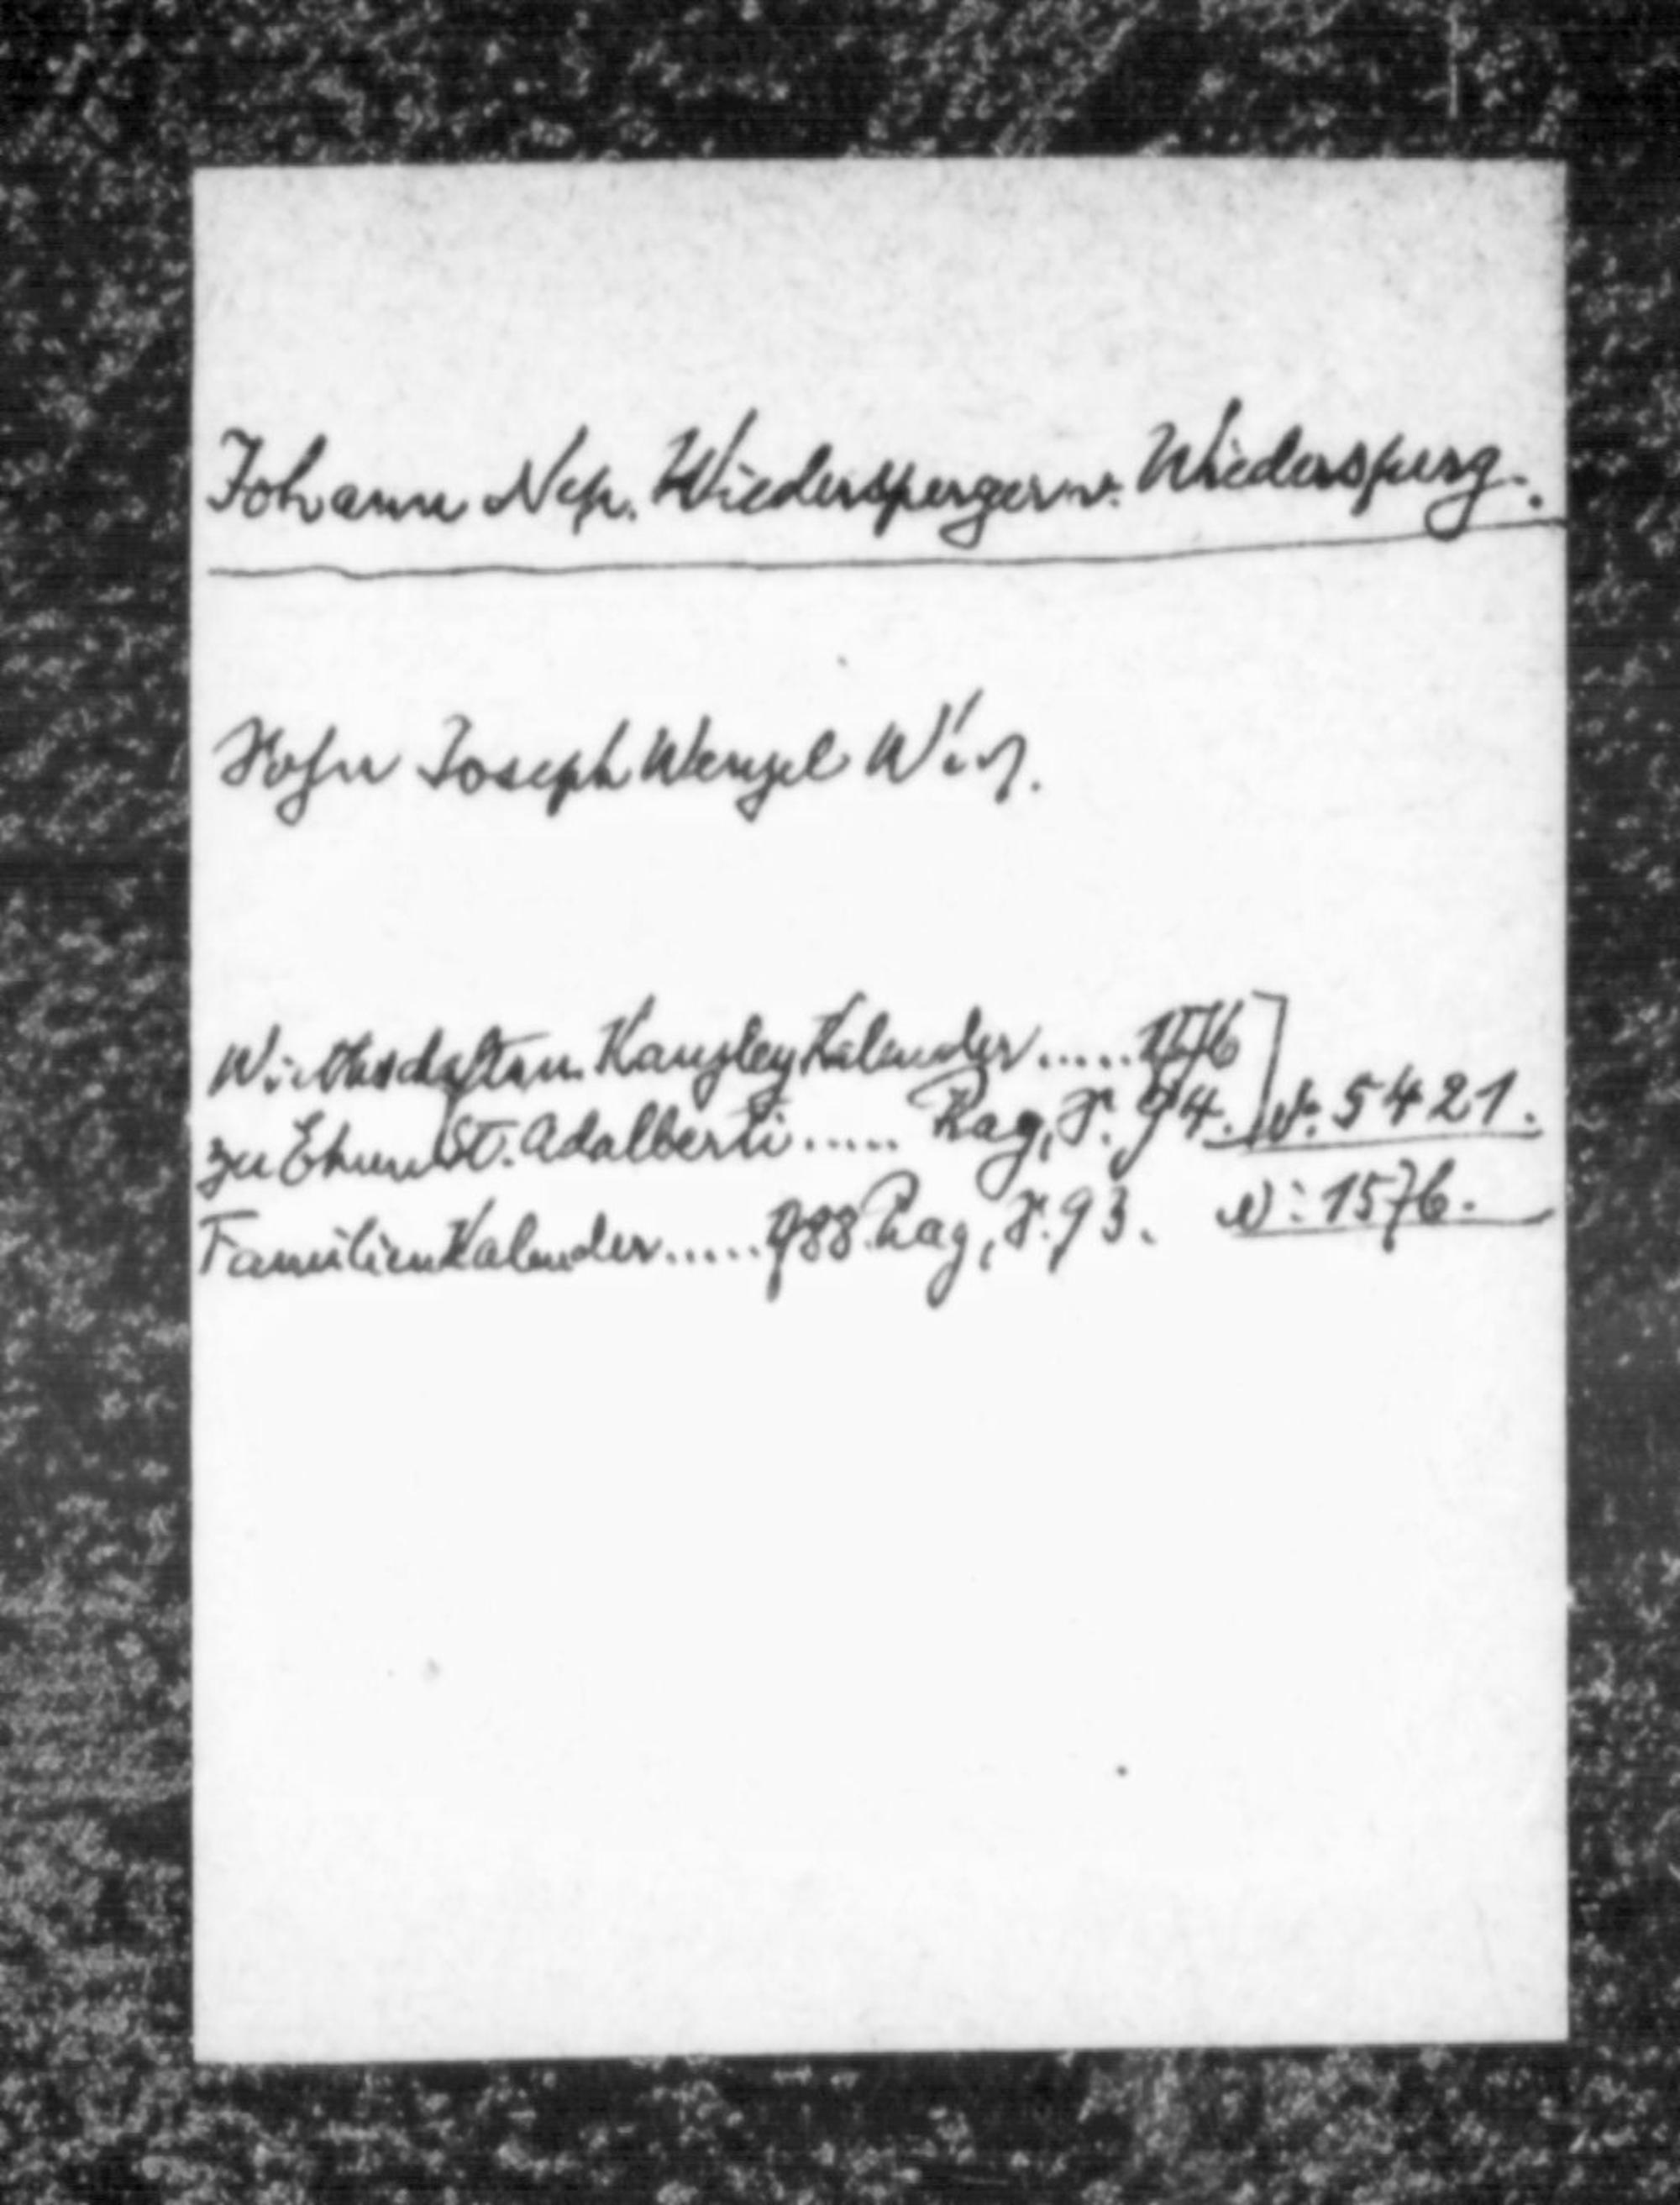 Johann Nep. Wiedersperger v. Wiedersperg.
Sohn Joseph Wenzel W.
Wirthschafts u. Kanzley Kalender.....
zu Ehren St. Adalberti..... Prag, S. 94. N. 5421.
Familien Kalender..... 788 Prag, S. 93. N: 1576.